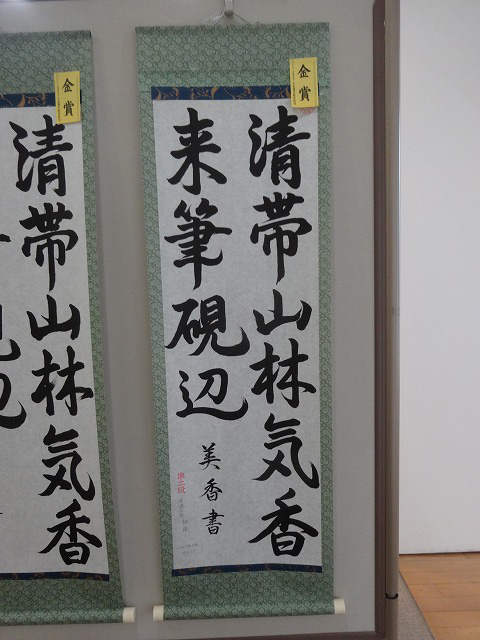 金賞
清帯山林気香
来筆硯辺
美香書
準二段
金賞
清帯山林気香